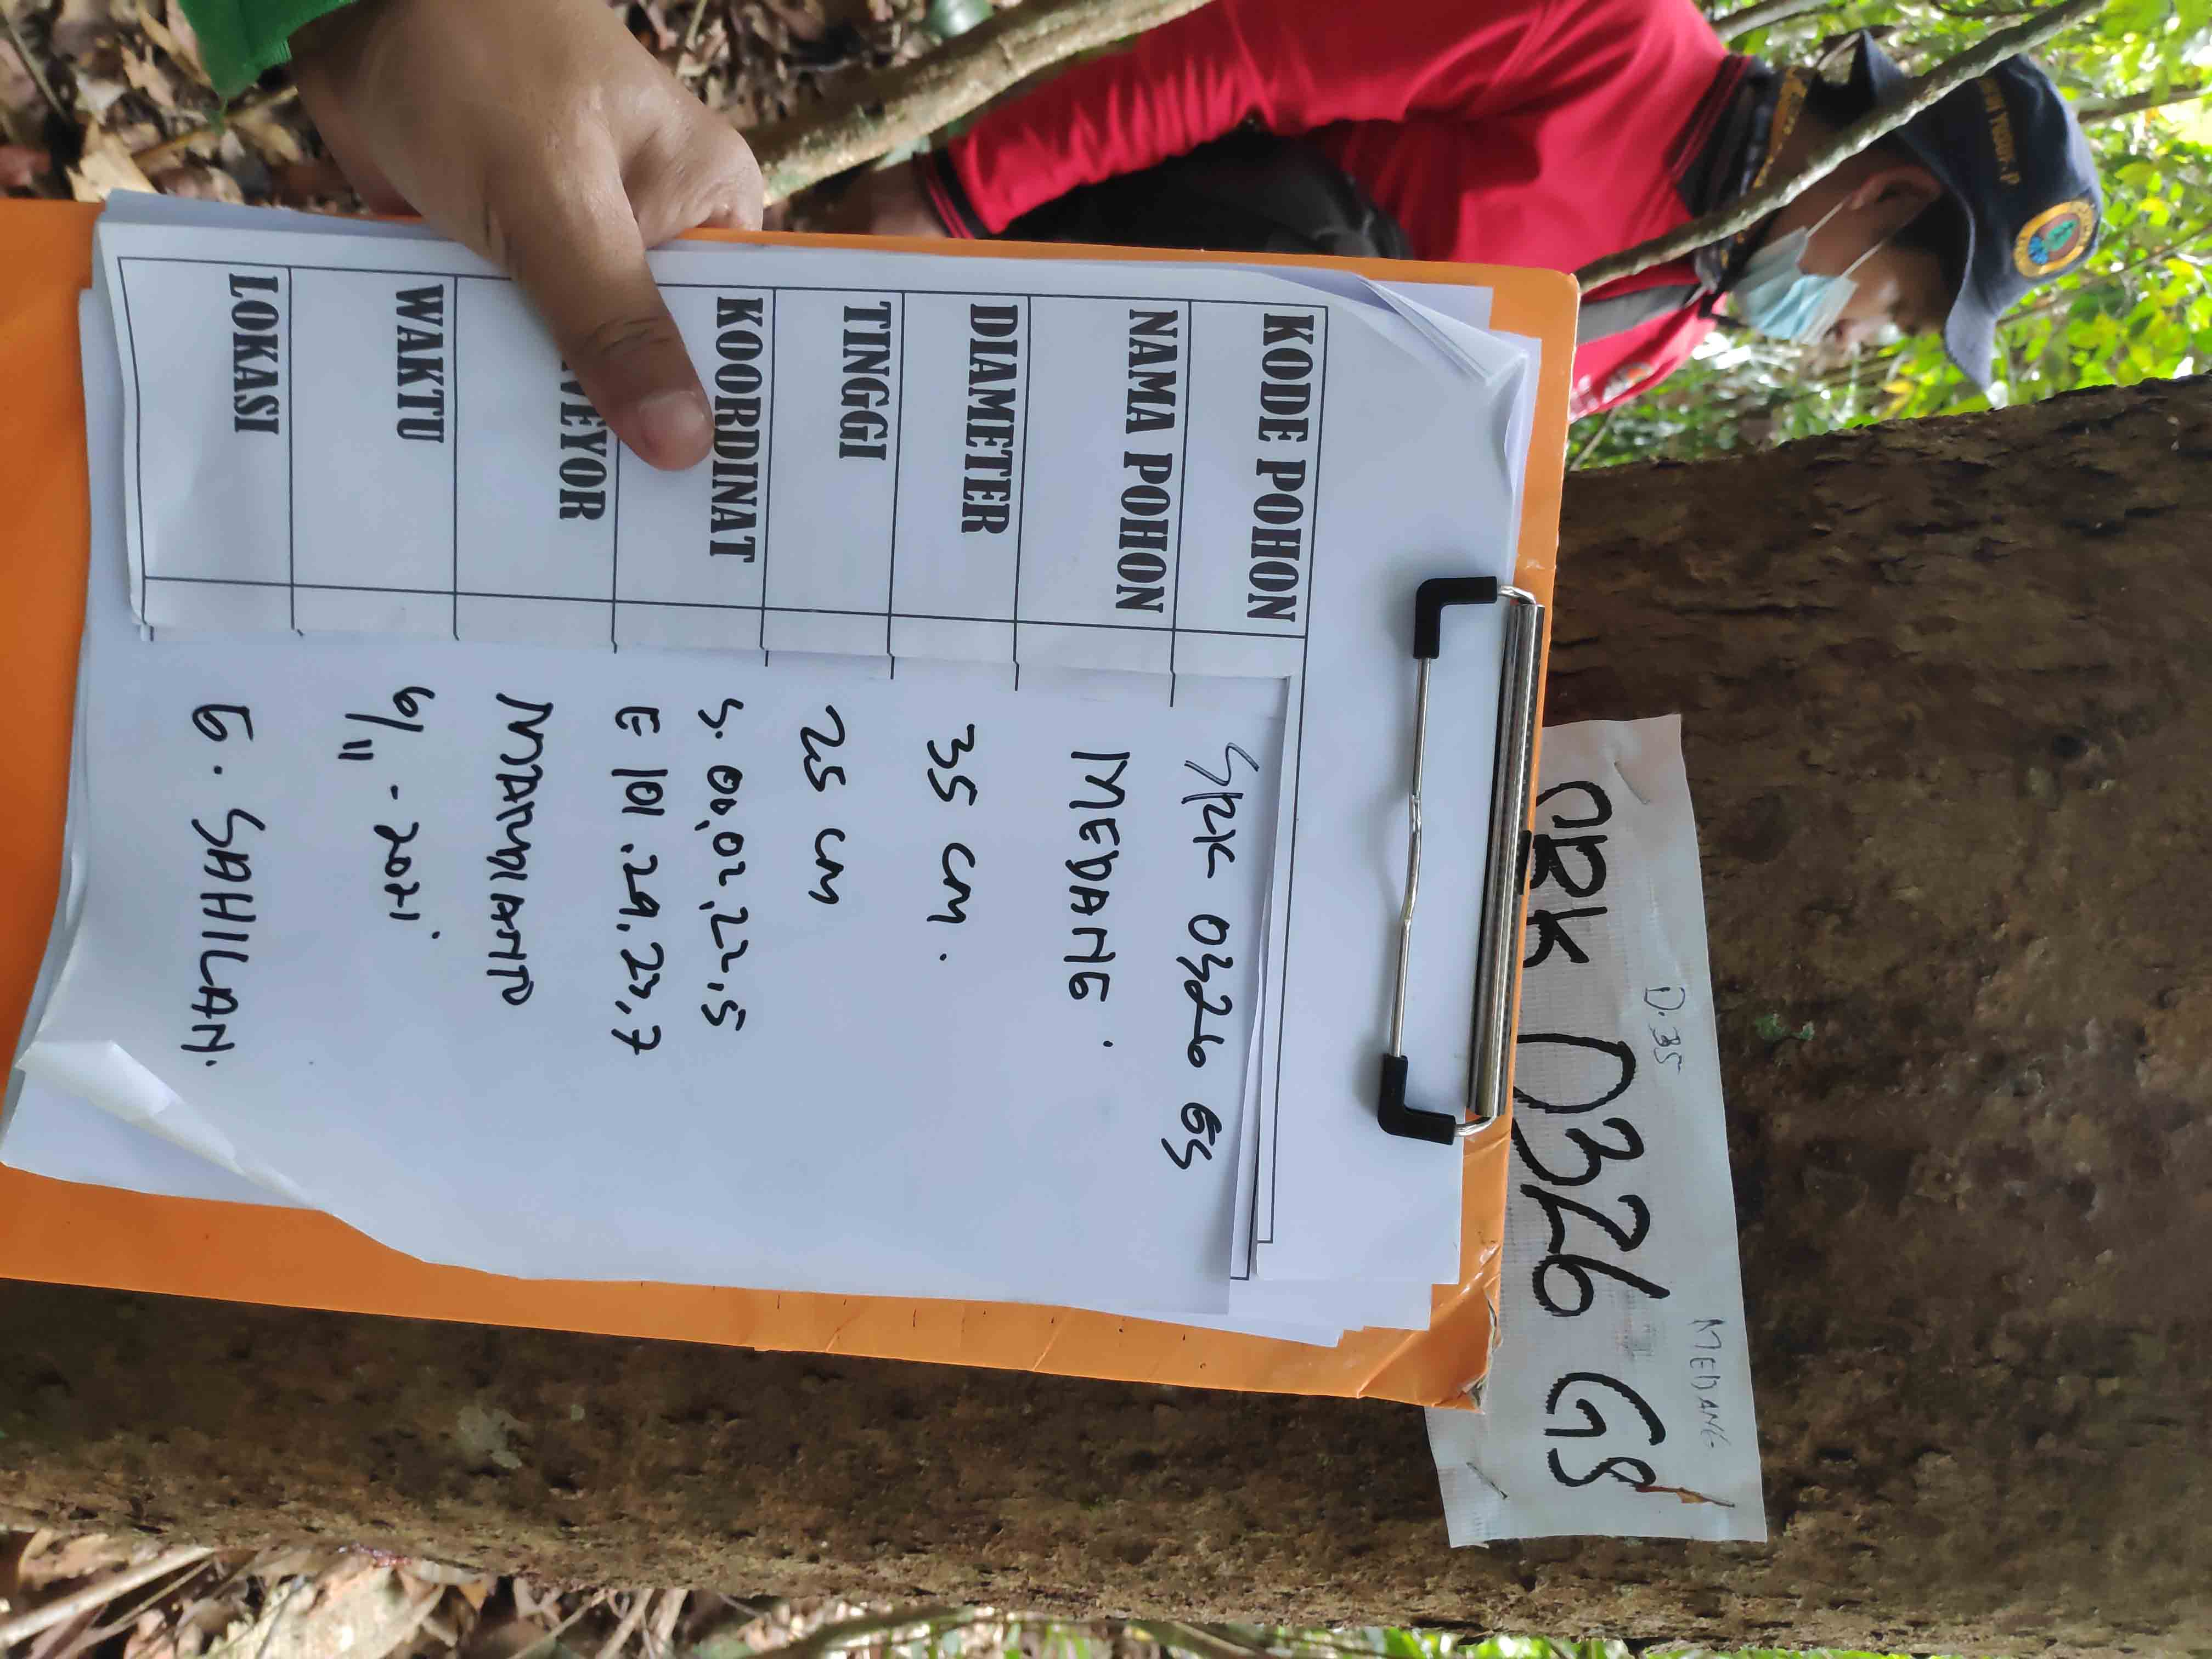 YUSUF. P
D. 35
MEDANG
SRK 0326 GS
KODE POHON
SRK 0326 GS
NAMA POHON
MEDANG
DIAMETER
35 CM.
TINGGI
25 CM
KOORDINAT
S. 00,02,22,5
E 101.29.23,7
VEYOR
MARDIANTO
WAKTU
6/11 - 2021
LOKASI
G. SAHILAN.